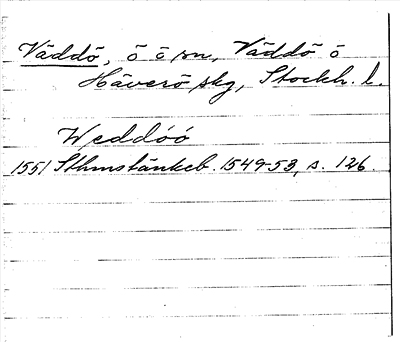 Väddö, ö o sn, Väddö o
Häverö skg, Stockh. l.
Weddöö
1551 Sthmstänkeb. 1549-53, s. 126.